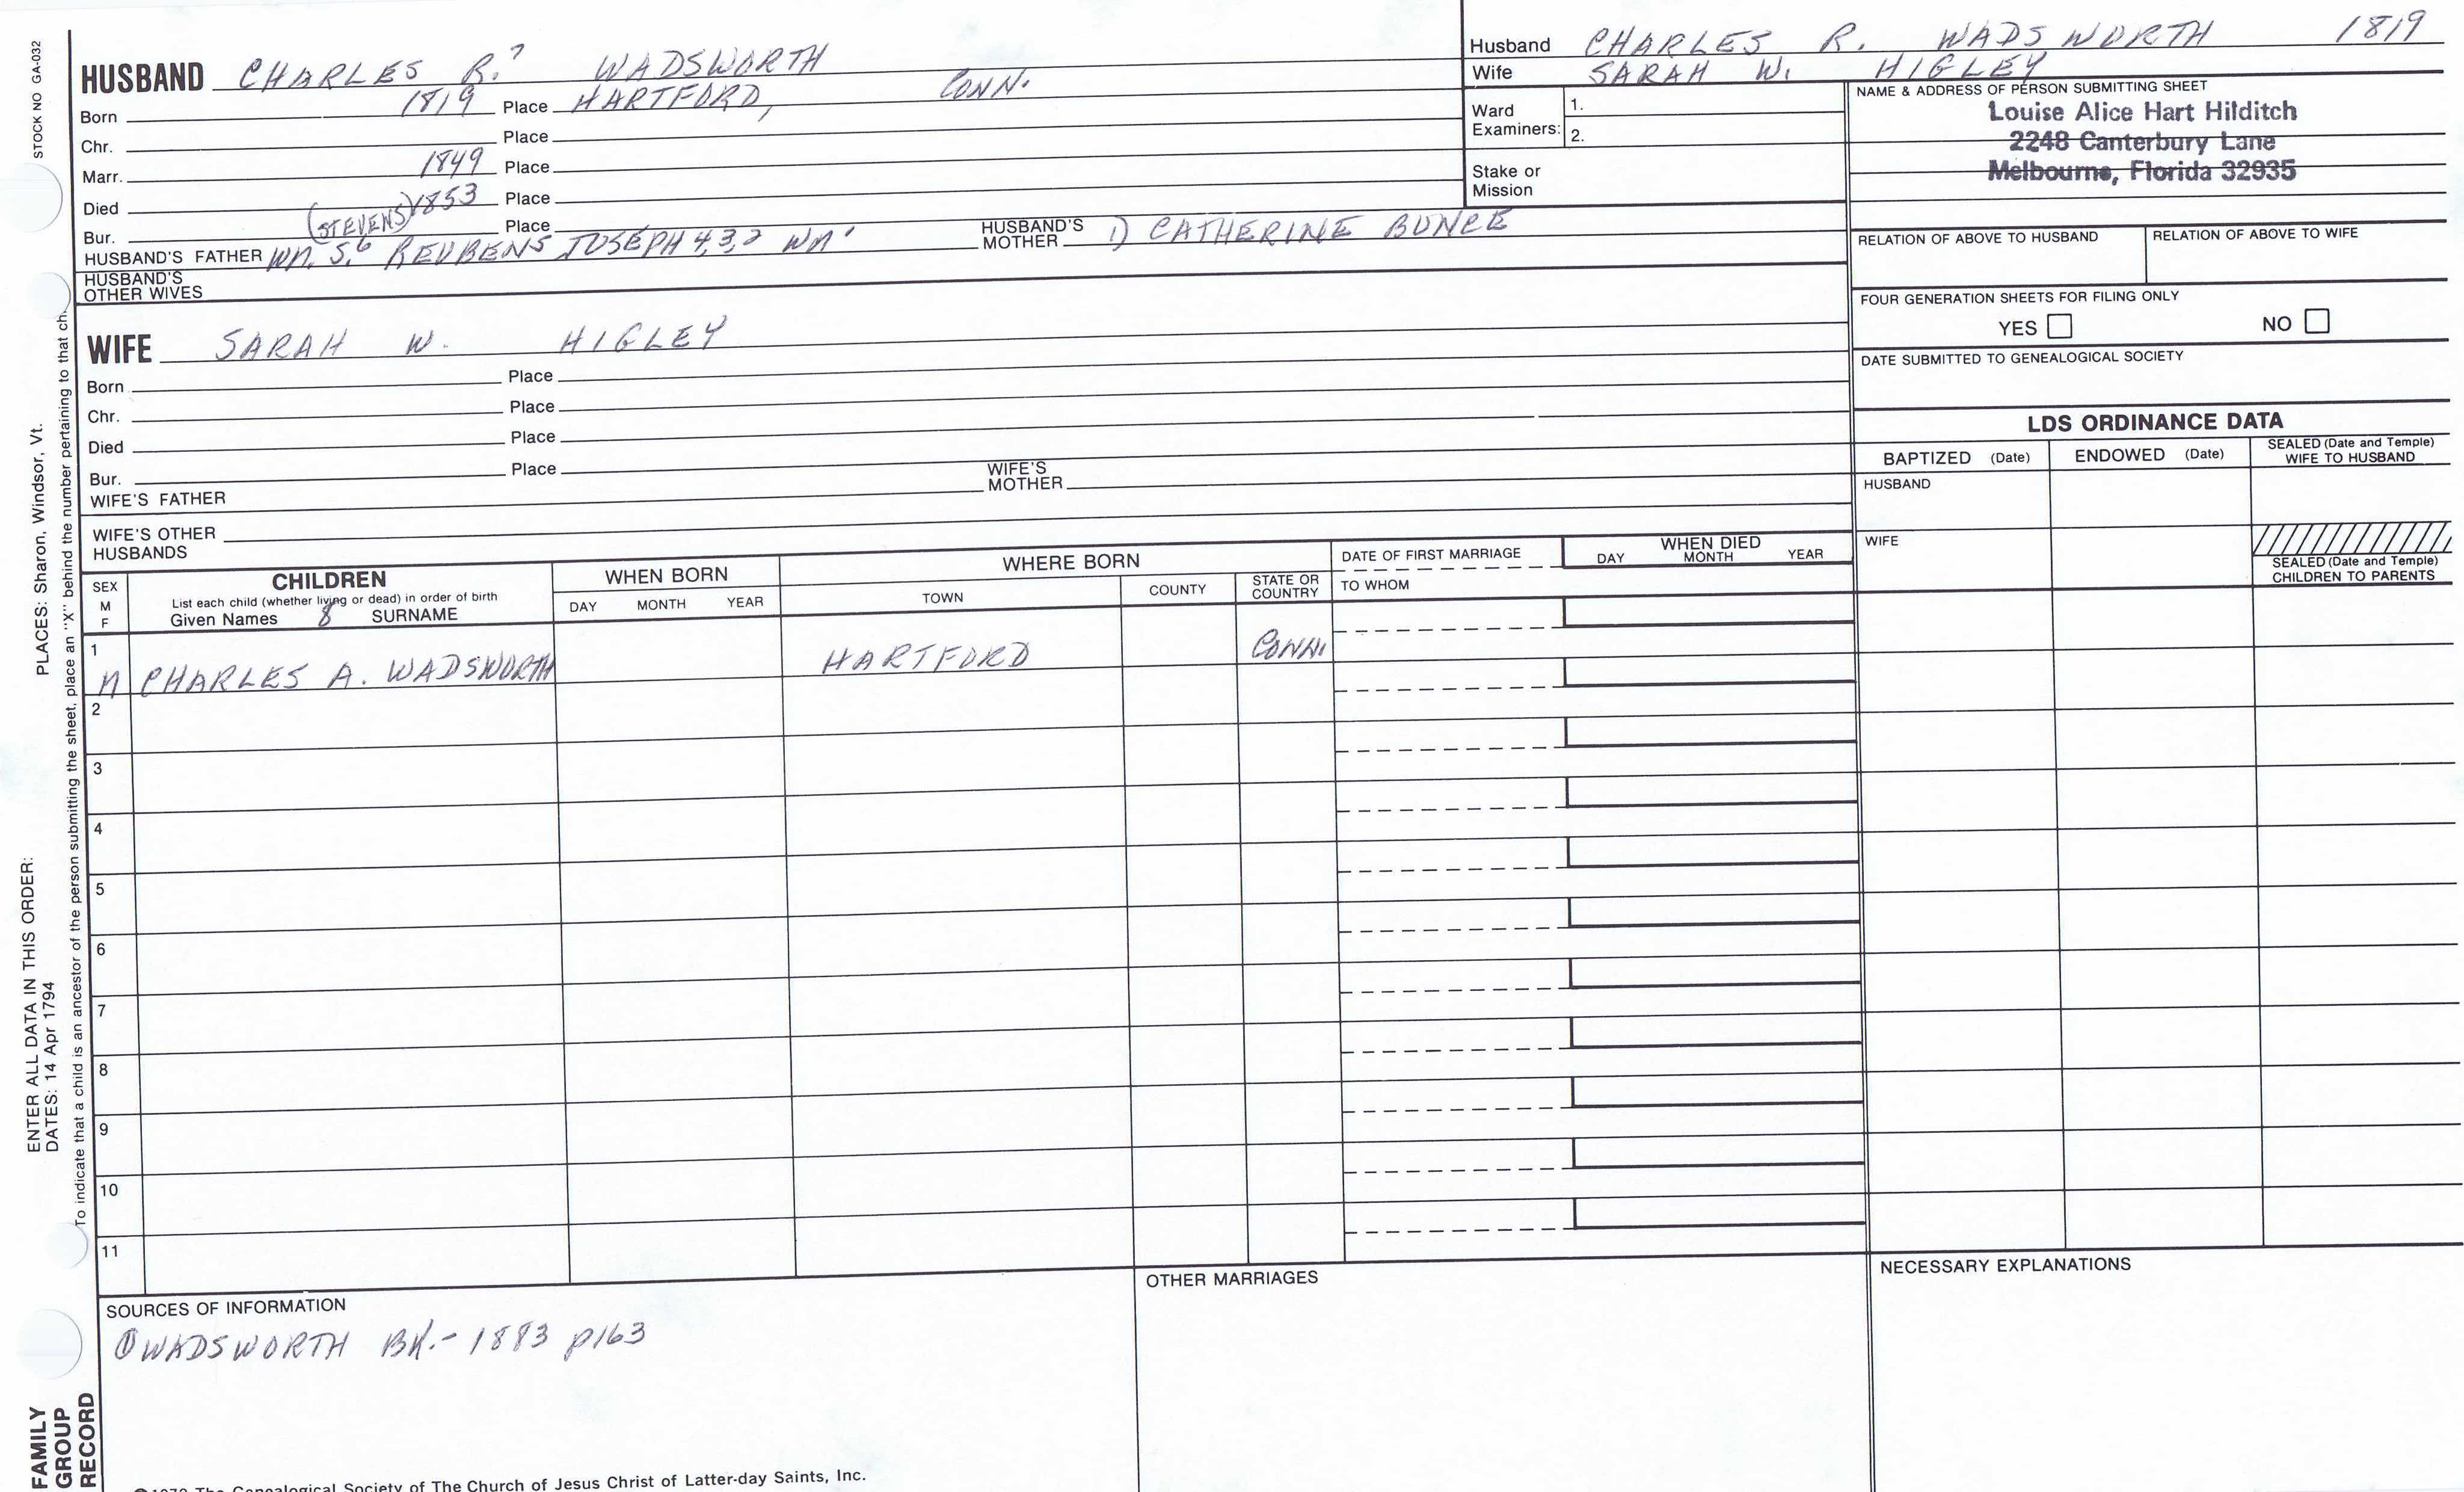 STOCK NO GA-032
HUSBAND CHARLES R.7 WADSWORTH
Born 1819 Place HARTFORD, CONN.
Chr. Place
Marr. 1849 Place
Died 1853 Place
Bur. (STEVENS) Place
HUSBAND'S FATHER WM. S.6 REUBEN5 JOSEPH 4,3,2 WM1 HUSBAND'S MOTHER 1) CATHERINE BUNCE
HUSBAND'S OTHER WIVES
WIFE SARAH W. HIGLEY
Born Place
Chr. Place
Died Place
Bur. Place
WIFE'S FATHER WIFE'S MOTHER
WIFE'S OTHER HUSBANDS
Husband CHARLES R. WADSWORTH 1819
Wife SARAH W. HIGLEY
Ward Examiners: 1.
2.
Stake or Mission
NAME & ADDRESS OF PERSON SUBMITTING SHEET
Louise Alice Hart Hilditch
2248 Canterbury Lane
Melbourne, Florida 32935
RELATION OF ABOVE TO HUSBAND RELATION OF ABOVE TO WIFE
FOUR GENERATION SHEETS FOR FILING ONLY
YES NO
DATE SUBMITTED TO GENEALOGICAL SOCIETY
LDS ORDINANCE DATA
BAPTIZED (Date) ENDOWED (Date) SEALED (Date and Temple) WIFE TO HUSBAND
HUSBAND
WIFE
SEALED (Date and Temple) CHILDREN TO PARENTS
SEX M F
CHILDREN
List each child (whether living or dead) in order of birth
Given Names 8 SURNAME
WHEN BORN
DAY MONTH YEAR
WHERE BORN
TOWN COUNTY STATE OR COUNTRY
DATE OF FIRST MARRIAGE
TO WHOM
WHEN DIED
DAY MONTH YEAR
1 M CHARLES A. WADSWORTH HARTFORD CONN.
2
3
4
5
6
7
8
9
10
11
SOURCES OF INFORMATION
① WADSWORTH BK.- 1883 p163
OTHER MARRIAGES
NECESSARY EXPLANATIONS
The Genealogical Society of The Church of Jesus Christ of Latter-day Saints, Inc.
ENTER ALL DATA IN THIS ORDER: PLACES: Sharon, Windsor, Vt.
DATES: 14 Apr 1794
To indicate that a child is an ancestor of the person submitting the sheet, place an "X" behind the number pertaining to that
FAMILY
GROUP
RECORD